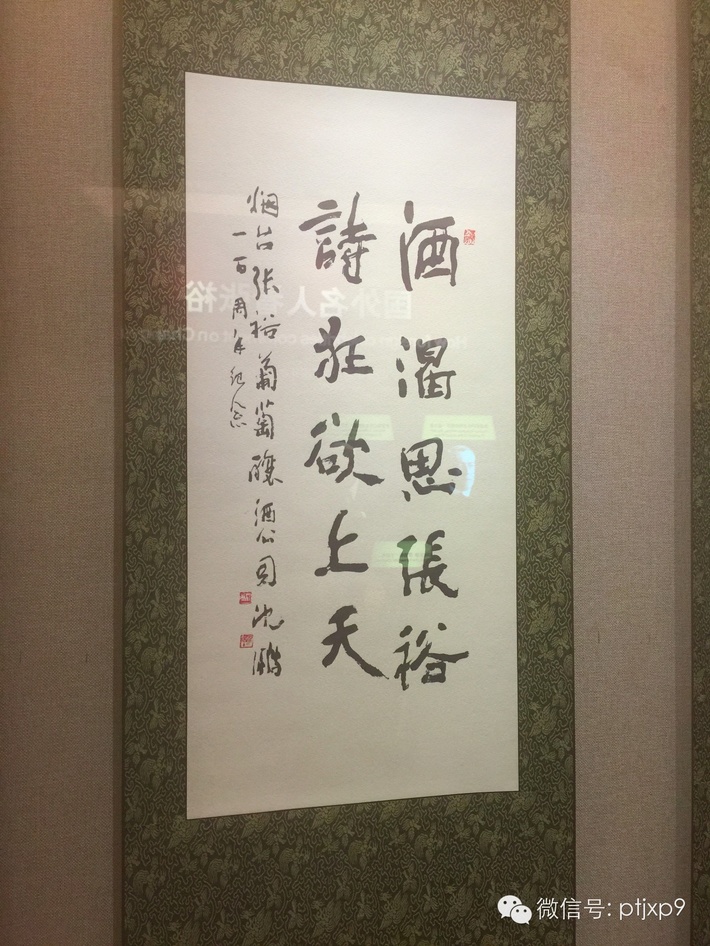 酒渴思張裕
詩狂欲上天
烟台張裕葡萄釀酒公司 沈鵬
一百周年纪念
国外名人看张裕
微信号: ptjxp9